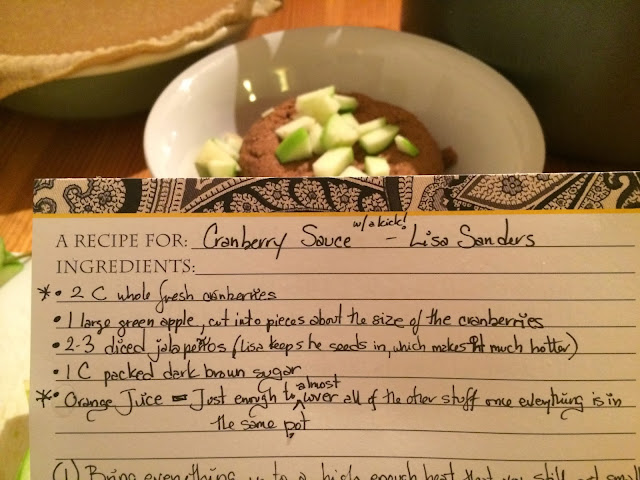 A RECIPE FOR: Cranberry Sauce w/ a kick! - Lisa Sanders
INGREDIENTS:
* • 2 C whole fresh cranberries
• 1 large green apple, cut into pieces about the size of the cranberries
• 2-3 diced jalapeños (Lisa keeps he seeds in, which makes it much hotter)
• 1 C packed dark brown sugar
* • Orange Juice = Just enough to almost cover all of the other stuff once everything is in
the same pot
(1) Bring everything up to a high enough heat that you still